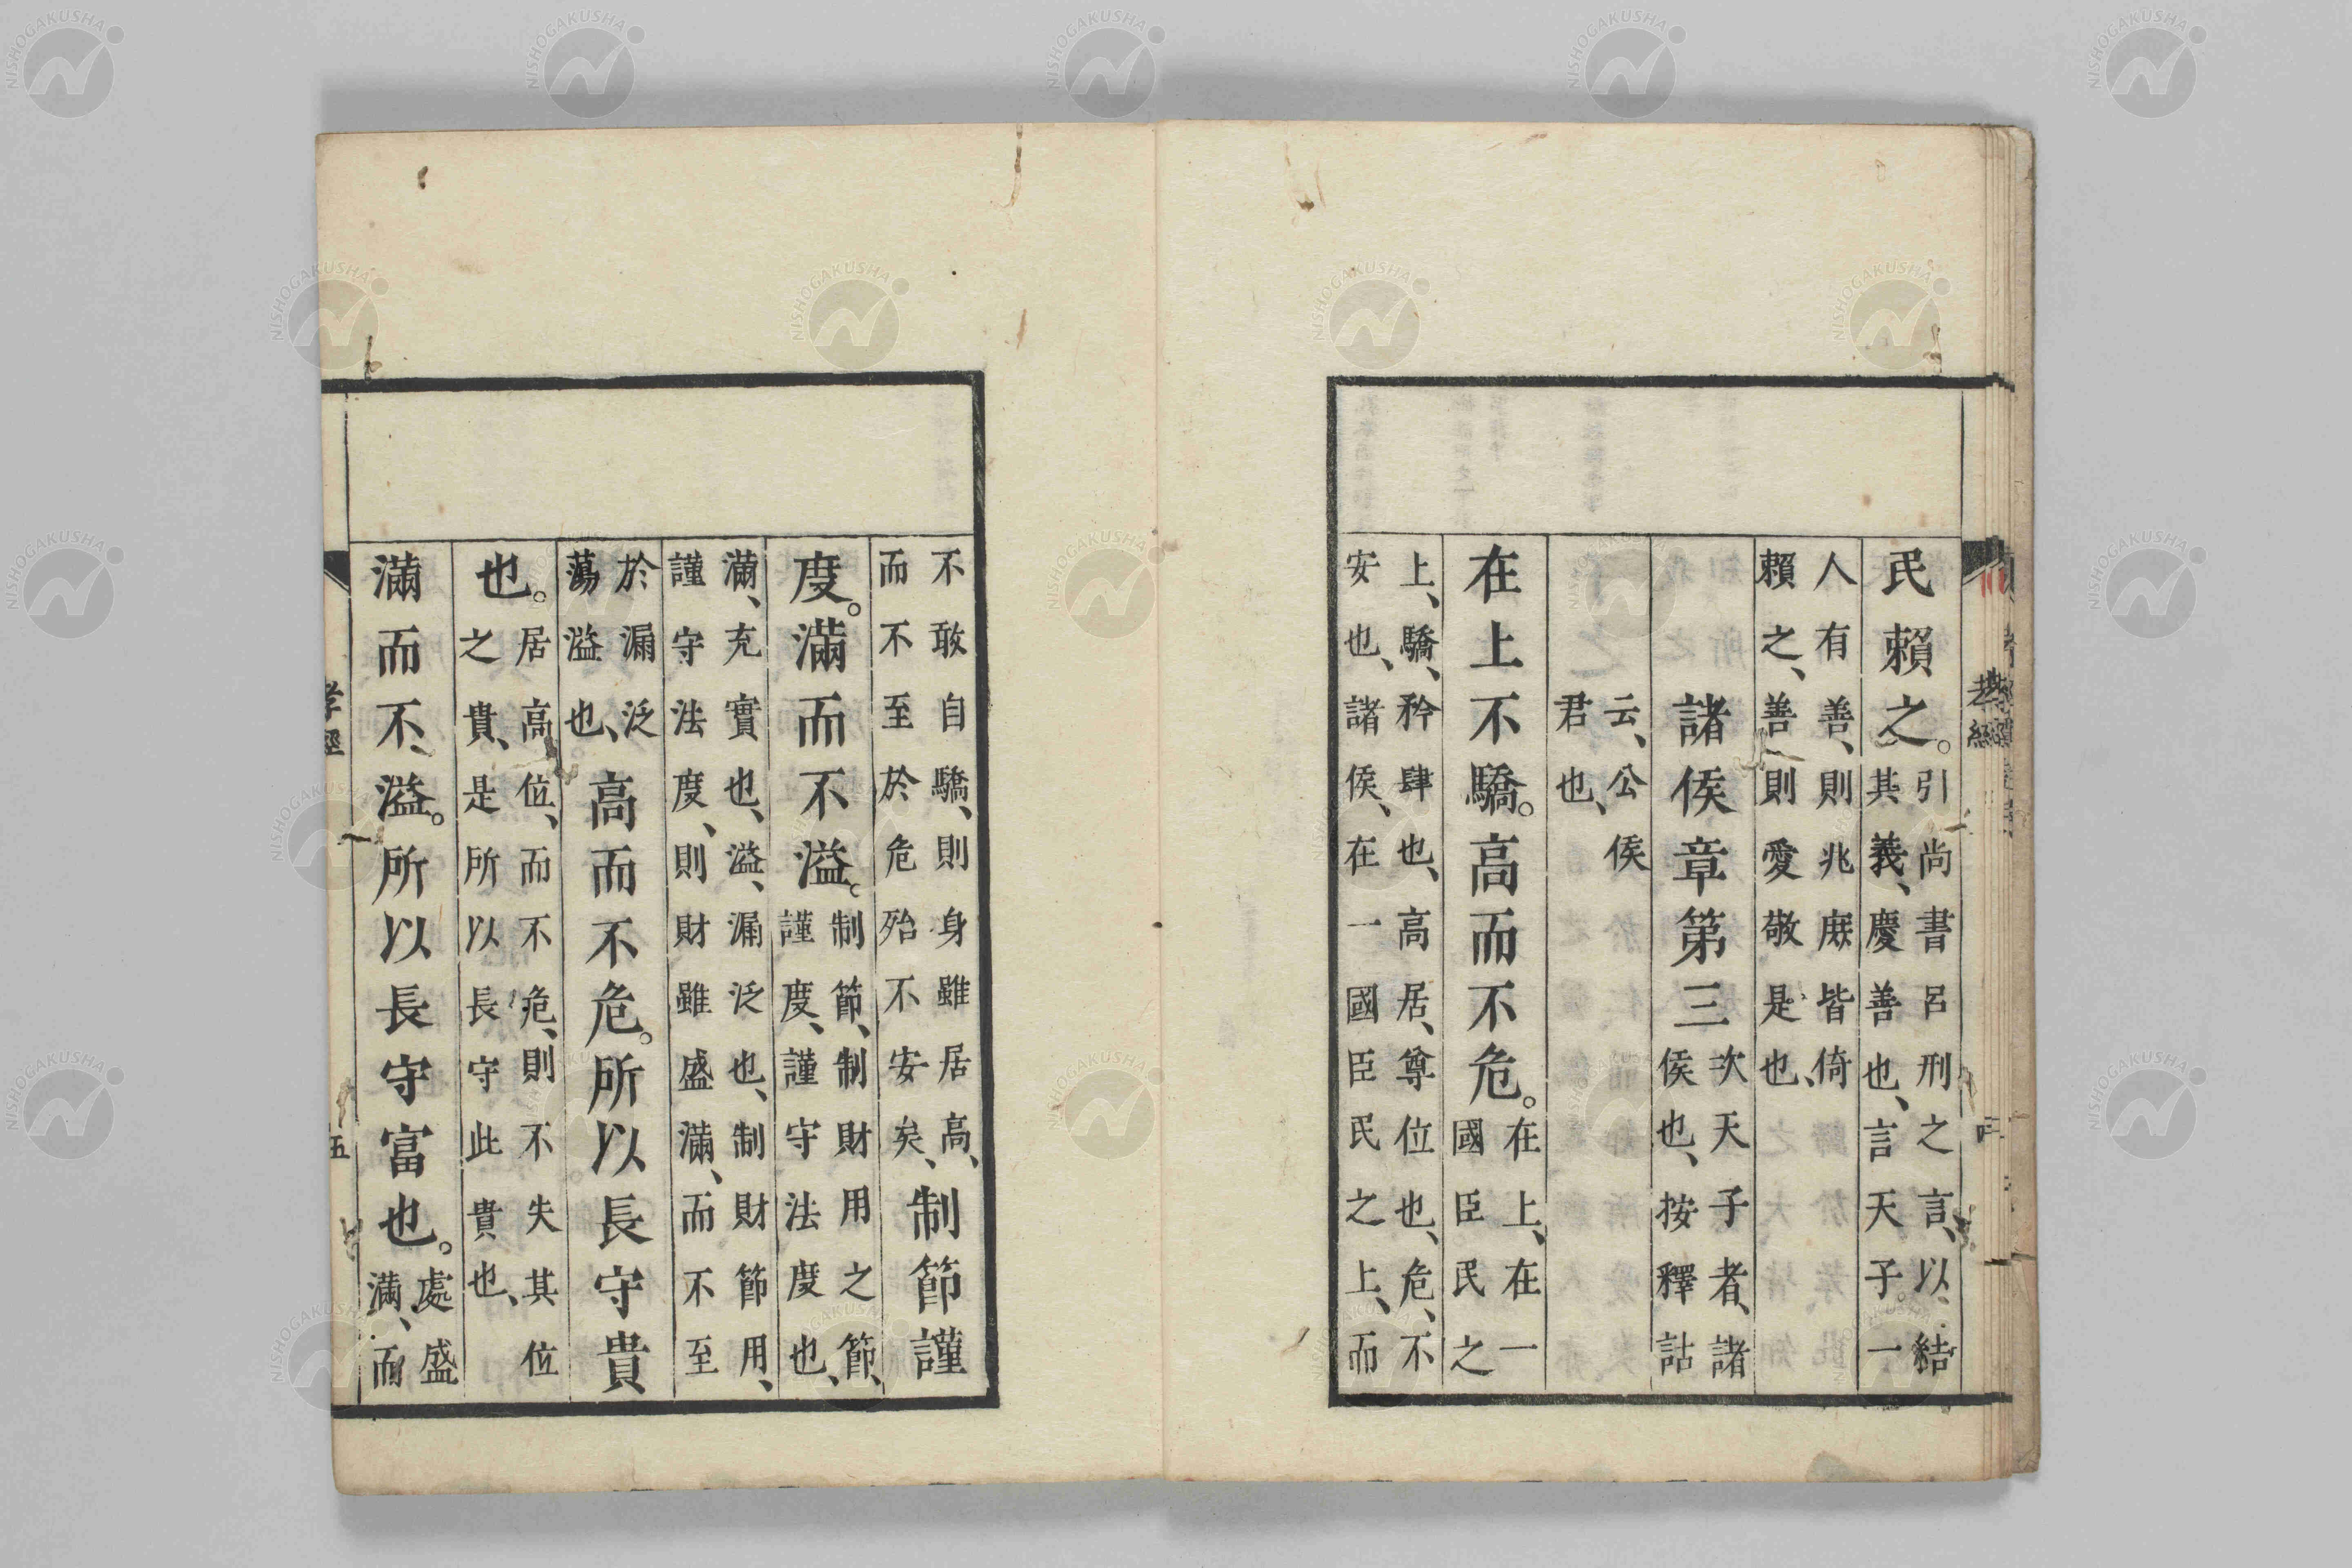 民賴之。引尚書呂刑之言、以結
其義、慶善也、言天子。一
人有善、則兆庶皆倚
賴之、善則愛敬是也、
諸侯章第三次天子者、諸
侯也、按釋詁
云、公侯
君也、
在上不驕。高而不危。在上、在一
國臣民之
上、驕、矜肆也、高居、尊位也、危、不
安也、諸侯、在一國臣民之上、而
不敢自驕、則身雖居高、
而不至於危殆不安矣、制節謹
度。滿而不溢。制節、制財用之節、
謹度、謹守法度也、
滿、充實也、溢、漏泛也、制財節用、
謹守法度、則財雖盛滿、而不至
於漏泛
蕩溢也、高而不危。所以長守貴
也。居高位、而不危、則不失其位
之貴、是所以長守此貴也、
滿而不溢。所以長守富也。處盛
滿、而
孝經
五
NISHOGAKUSHA